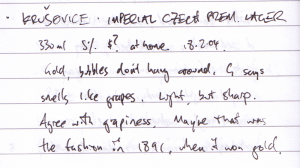 • KRUŠOVICE · IMPERIAL CZECH PREM. LAGER
330ml 5% $? at home 18.2.04.
Gold, bubbles don't hang around. G says
smells like grapes. Light, but sharp.
Agree with grapiness. Maybe that was
the fashion in 1891, when it won gold.